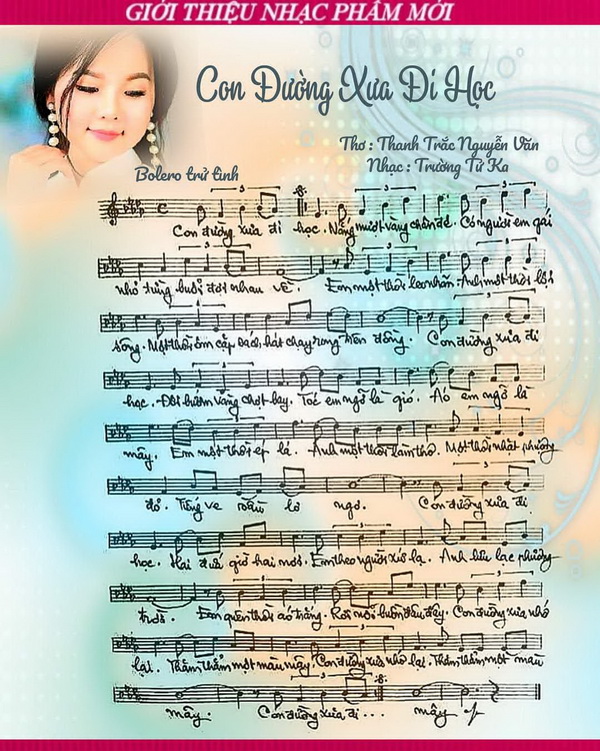 GIỚI THIỆU NHẠC PHẨM MỚI
Con Đường Xưa Đi Học
Thơ : Thanh Trắc Nguyễn Văn
Nhạc : Trường Tử Ka
Bolero trử tình
Con đường xưa đi học. Nắng mướt vàng chân đê. Có người em gái
nhỏ từng buổi đợi nhau về. Em một thời leo nhăn. Anh một thời lội
sông. Một thời ôm cặp sách, hát chạy rong trên đồng. Con đường xưa đi
học. Đôi bướm vàng chợt bay. Tóc em ngỡ là gió. Áo em ngỡ là
mây. Em một thời ép lá. Anh một thời làm thơ. Một thời nhặt phượng
đỏ. Tiếng ve sầu lơ ngơ. Con đường xưa đi
học. Hai đứa giờ hai nơi. Em theo người xứ lạ. Anh lạc phương
trời. Em quên thời áo trắng. Rơi nỗi buồn đâu đây. Con đường xưa nhớ
lại. Thăm thẳm một màu mây. Con đường xưa nhớ lại. Thăm thẳm một màu
mây. Con đường xưa đi... mây